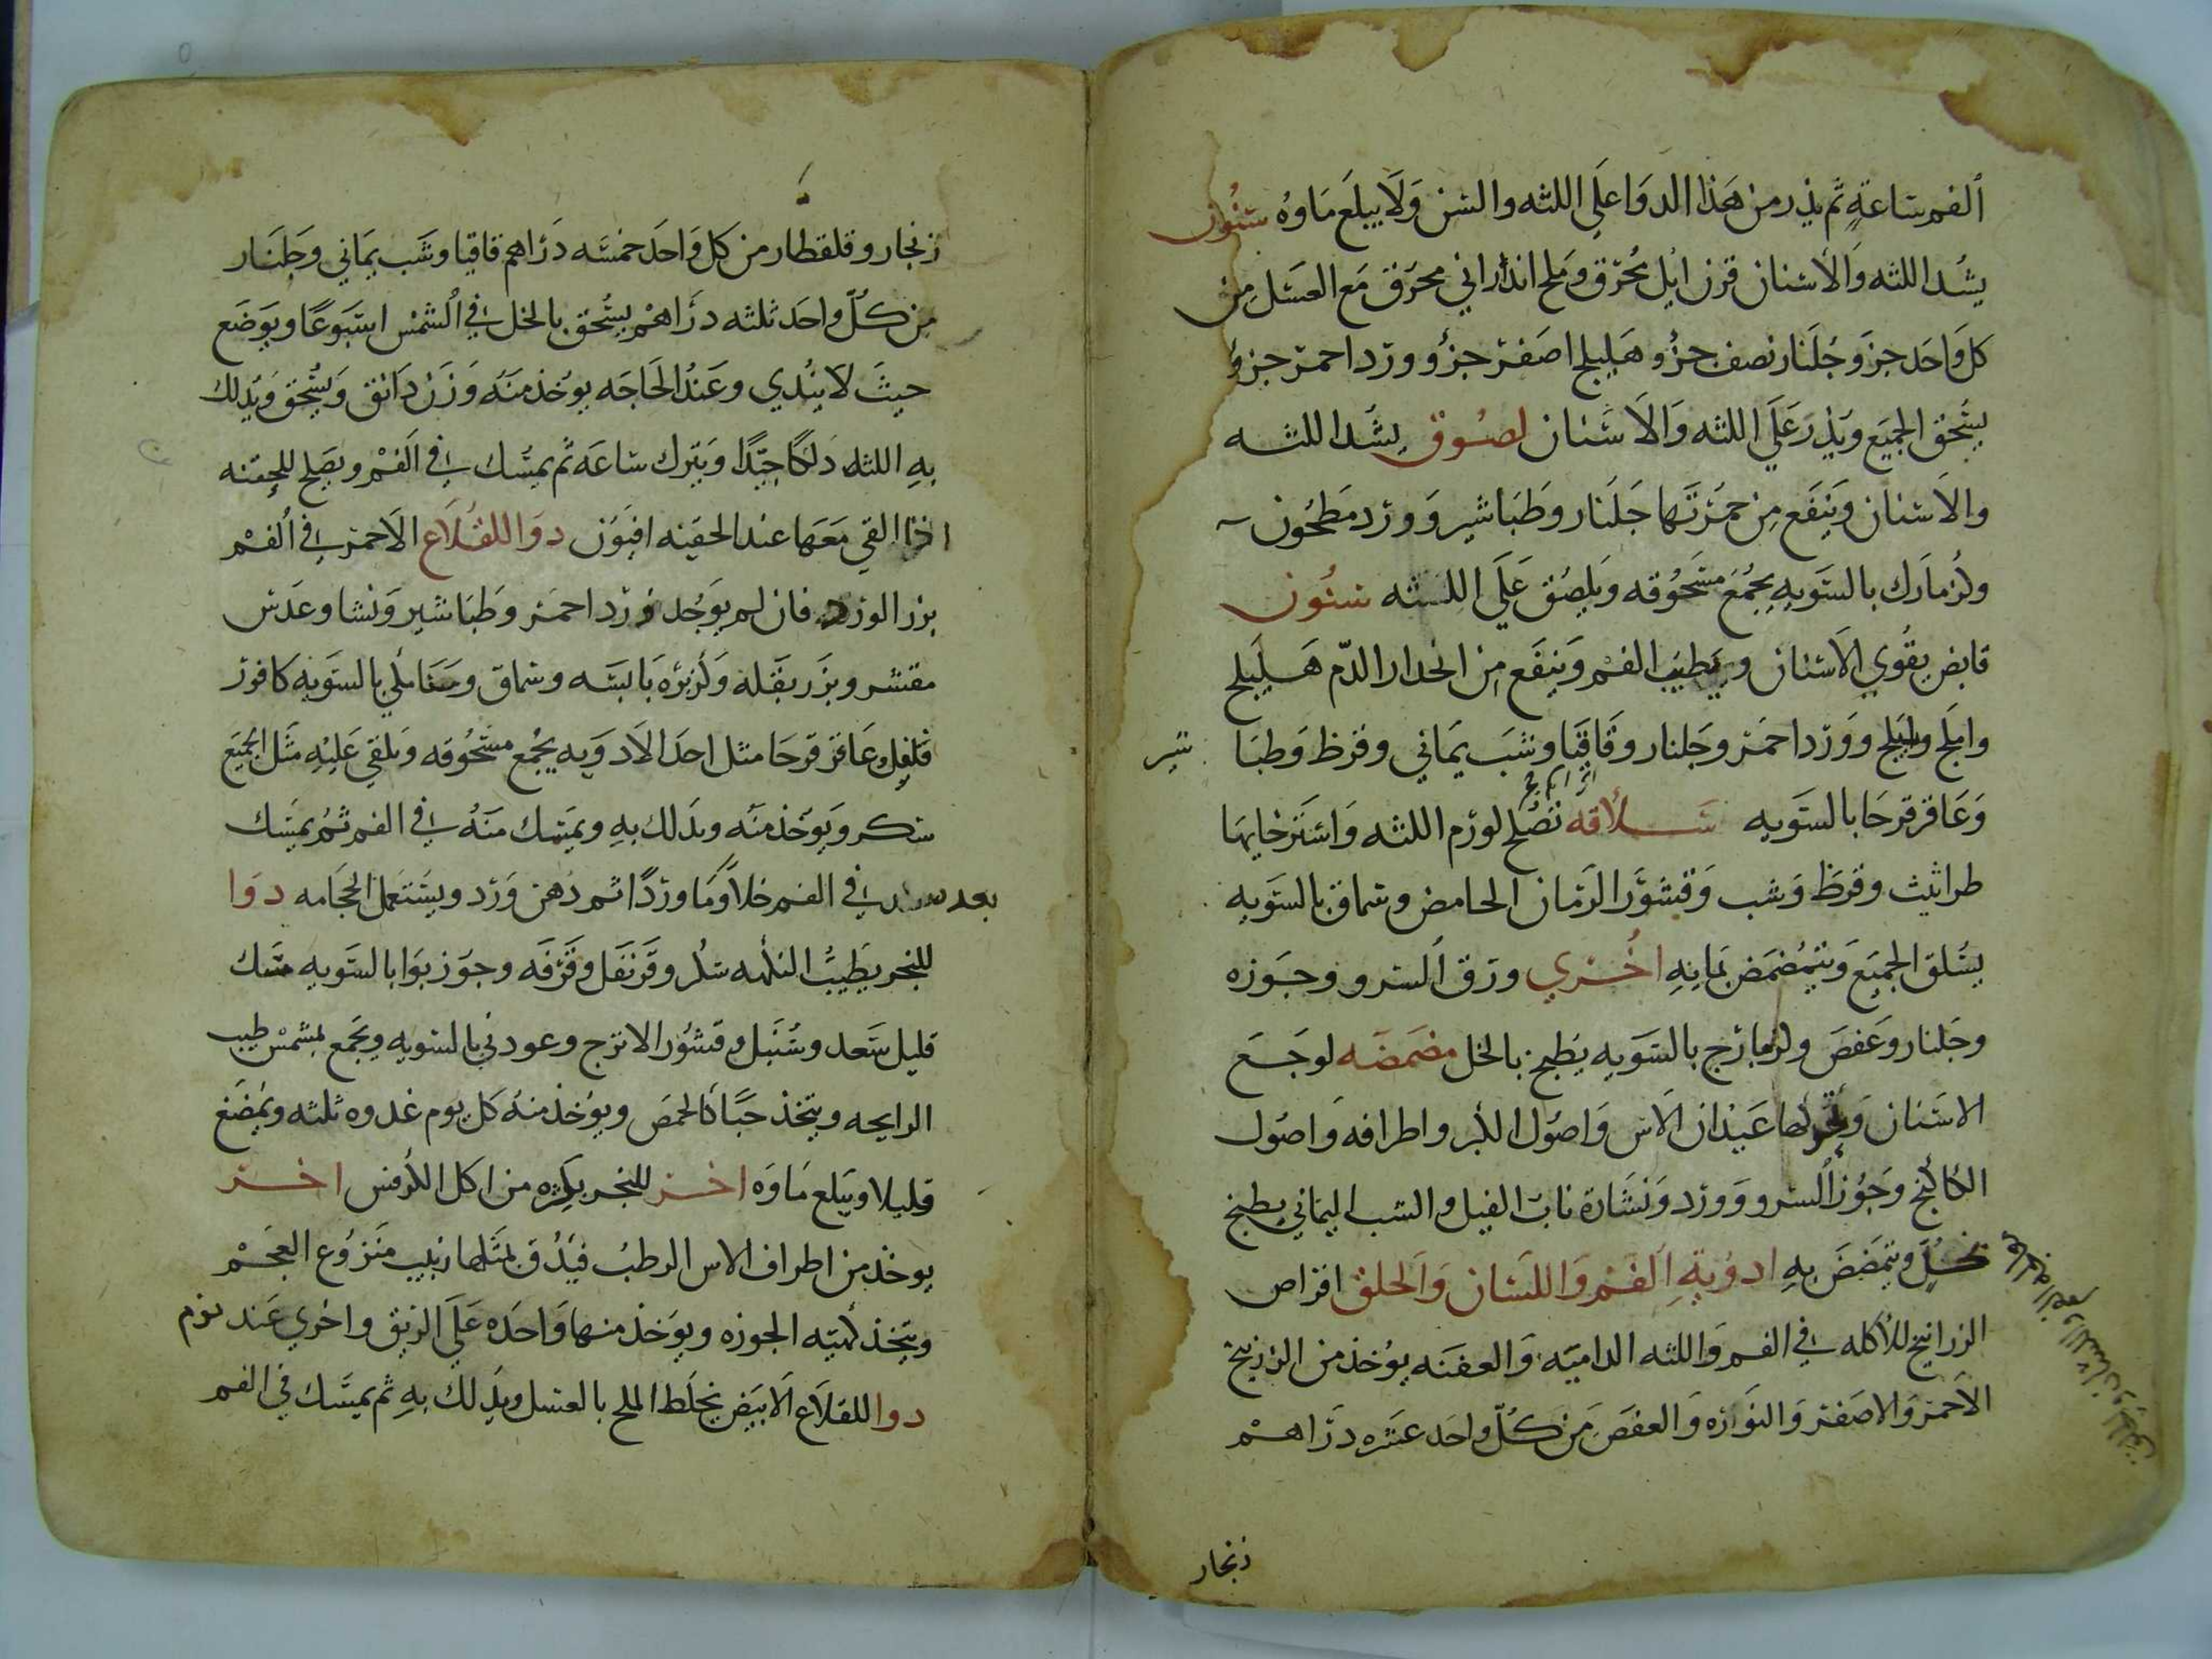 الفم ساعة ثم يذر من هذا الدوا على اللثه والسن ولا يبلع ماوه سنون
يشد اللثه والأسنان قرن ايل محرق وملح اندراني محرق مع العسل من
كل واحد جزو جلنار نصف جزؤ هليلج اصفر جزؤ وورد احمر جزؤ
يسحق الجميع ويذر على اللثه والاسنان لصوق يشد اللثه
والاسنان وينفع من حمرتها جلنار وطباشير وورد مطحون
وكزمازك بالسويه يجمع مسحوقه ويلصق على اللثه سنون
قابض يقوي الاسنان ويطيب الفم وينفع من انحدار الدم هليلج
واملج وبليلج وورد احمر وجلنار وقاقيا وشب يماني وقرظ وطبا شير
وعاقر قرحا بالسويه سلاقه تصلح لورم اللثه واسترخايها
طراثيث وقرظ وشب وقشور الرمان الحامض وسماق بالسويه
يسلق الجميع ويتمضمض بمايه اخري ورق السرو وجوزه
وجلنار وعفص وكزمازج بالسويه يطبخ بالخل مضمضه لوجع
الاسنان وتحركها عيدان الاس واصول الكبر واطرافه واصول
الكاكنج وجوز السرو وورد ونشارة ناب الفيل والشب اليماني يطبخ
بخل ويتمضمض به ادوية الفم واللسان والحلق اقراص
الزرانيخ للأكله في الفم واللثه الداميه والعفنه يوخذ من الزرنيخ
الاحمر والاصفر والنوره والعفص من كل واحد عشره دراهم
زنجار
زنجار وقلقطار من كل واحد خمسه دراهم قاقيا وشب يماني وجلنار
من كل واحد ثلثه دراهم يسحق بالخل في الشمس اسبوعا ويوضع
حيث لا يندي وعند الحاجه يوخذ منه وزن دانق ويسحق ويدلك
به اللثه دلكا جيدا ويترك ساعه ثم يمسك في الفم ويصلح للحقنه
اذا القي معها عند الحقنه افيون دوا للقلاع الاحمر في الفم
بزر الورد فان لم يوجد ورد احمر وطباشير ونشا وعدس
مقشر وبزر بقله وكزبره يابسه وسماق بالسويه كافور
فلفل وعاقر قرحا مثل احد الادويه يجمع مسحوقه ويلقي عليه مثل الجميع
سكر ويوخذ منه ويدلك به ويمسك منه في الفم ثم يمسك
بعد في الفم خلا وما ورد ثم دهن ورد ويستعمل الحجامه دوا
للبخر يطيب النكهه سك وقرنفل وقرفه وجوز بوا بالسويه مسك
قليل سعد وسنبل وقشور الاترج وعود ني بالسويه ويجمع بمشمش طيب
الرايحه ويتخذ حبا كالحمص ويوخذ منه كل يوم غدوه ثلثه ويمضغ
قليلا ويبلع ماوه اخر للبخر يكثره من اكل الكرفس اخر
يوخذ من اطراف الاس الرطب فيدق بمثلها زبيب منزوع العجم
ويتخذ كهيئه الجوزه ويوخذ منها واحده على الريق واخري عند نوم
دوا للقلاع الابيض يخلط الملح بالعسل ويدلك به ثم يمسك في الفم